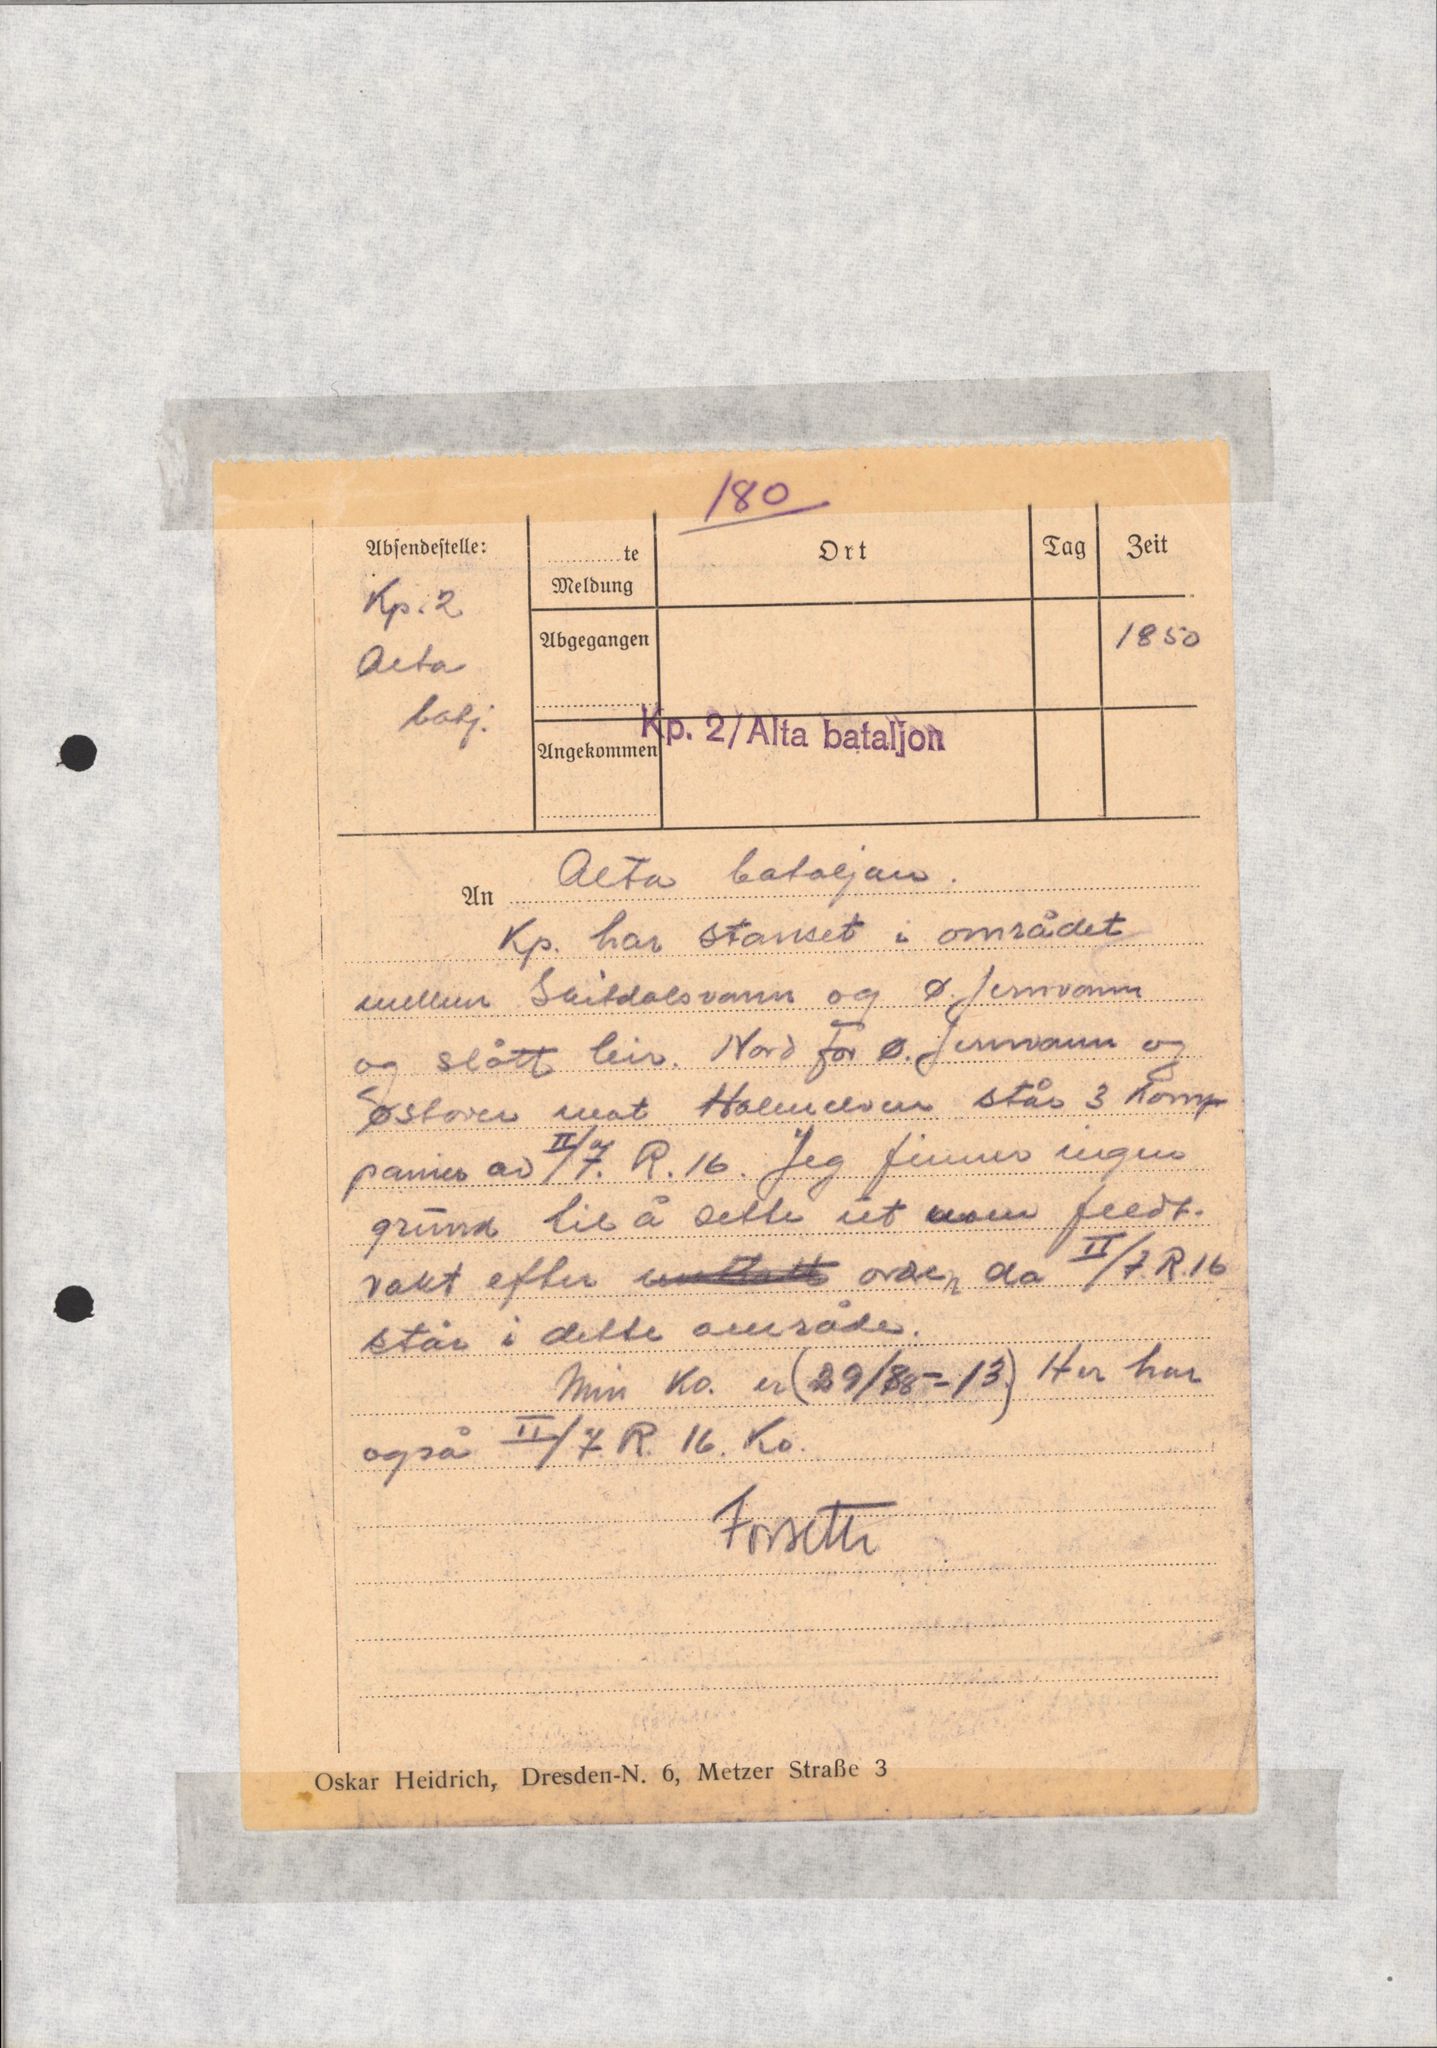 180
Absendestelle: ........te Ort Tag Zeit
Meldung
Kp. 2
Abgegangen 1850
Alta
batj.
Kp. 2/Alta bataljon
Angekommen
An Alta bataljon.
Kp. har stanset i området
mellem Skitdalsvann og Ø. Jernvann
og slått leir. Nord for Ø. Jernvann og
østover mot står 3 Komp
panier av II/7. R. 16. Jeg finner ingen
grund til å sette ut noen feldt.
vakt efter orden, da II/7. R. 16
står i dette område.
Min Ko. er (29/88-13) Her har
også II/7. R. 16. Ko.
Forseth
Oskar Heidrich, Dresden-N. 6, Metzer Straße 3